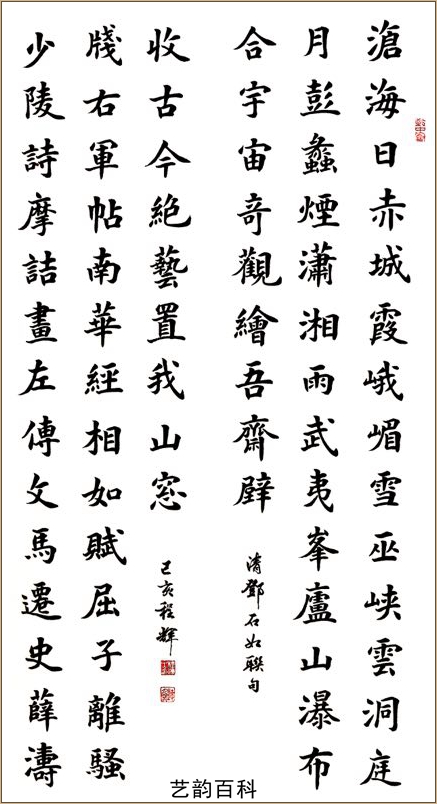 滄海日赤城霞峨嵋雪巫峡雲洞庭
月彭蠡煙瀟湘雨武夷峯廬山瀑布
合宇宙奇觀繪吾齋壁
清鄧石如聯句
少陵詩摩詰畫左傳文馬遷史薛濤
牋右軍帖南華經相如賦屈子離騷
收古今絶藝置我山窓
己亥程輝
艺韵百科